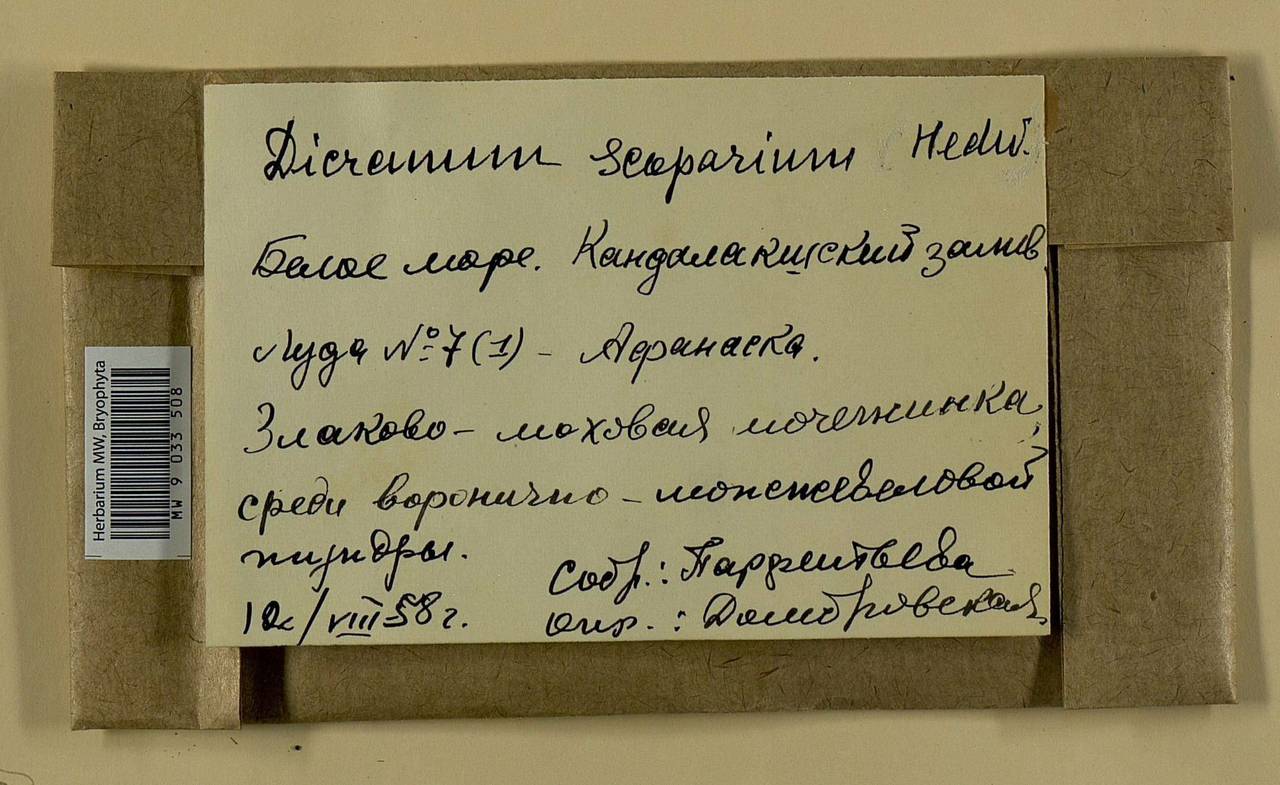 Dicranum scoparium Hedw.
Белое море. Кандалакшский залив
Луда №7(1) - Афанаска.
Злаково-моховая мочежинка,
среди воронично-можжевеловой
тундры.
Собр.: Парфентьева
/VIII 58 г.
опр.: Домбровская
Herbarium MW, Bryophyta
MW 9 033 508